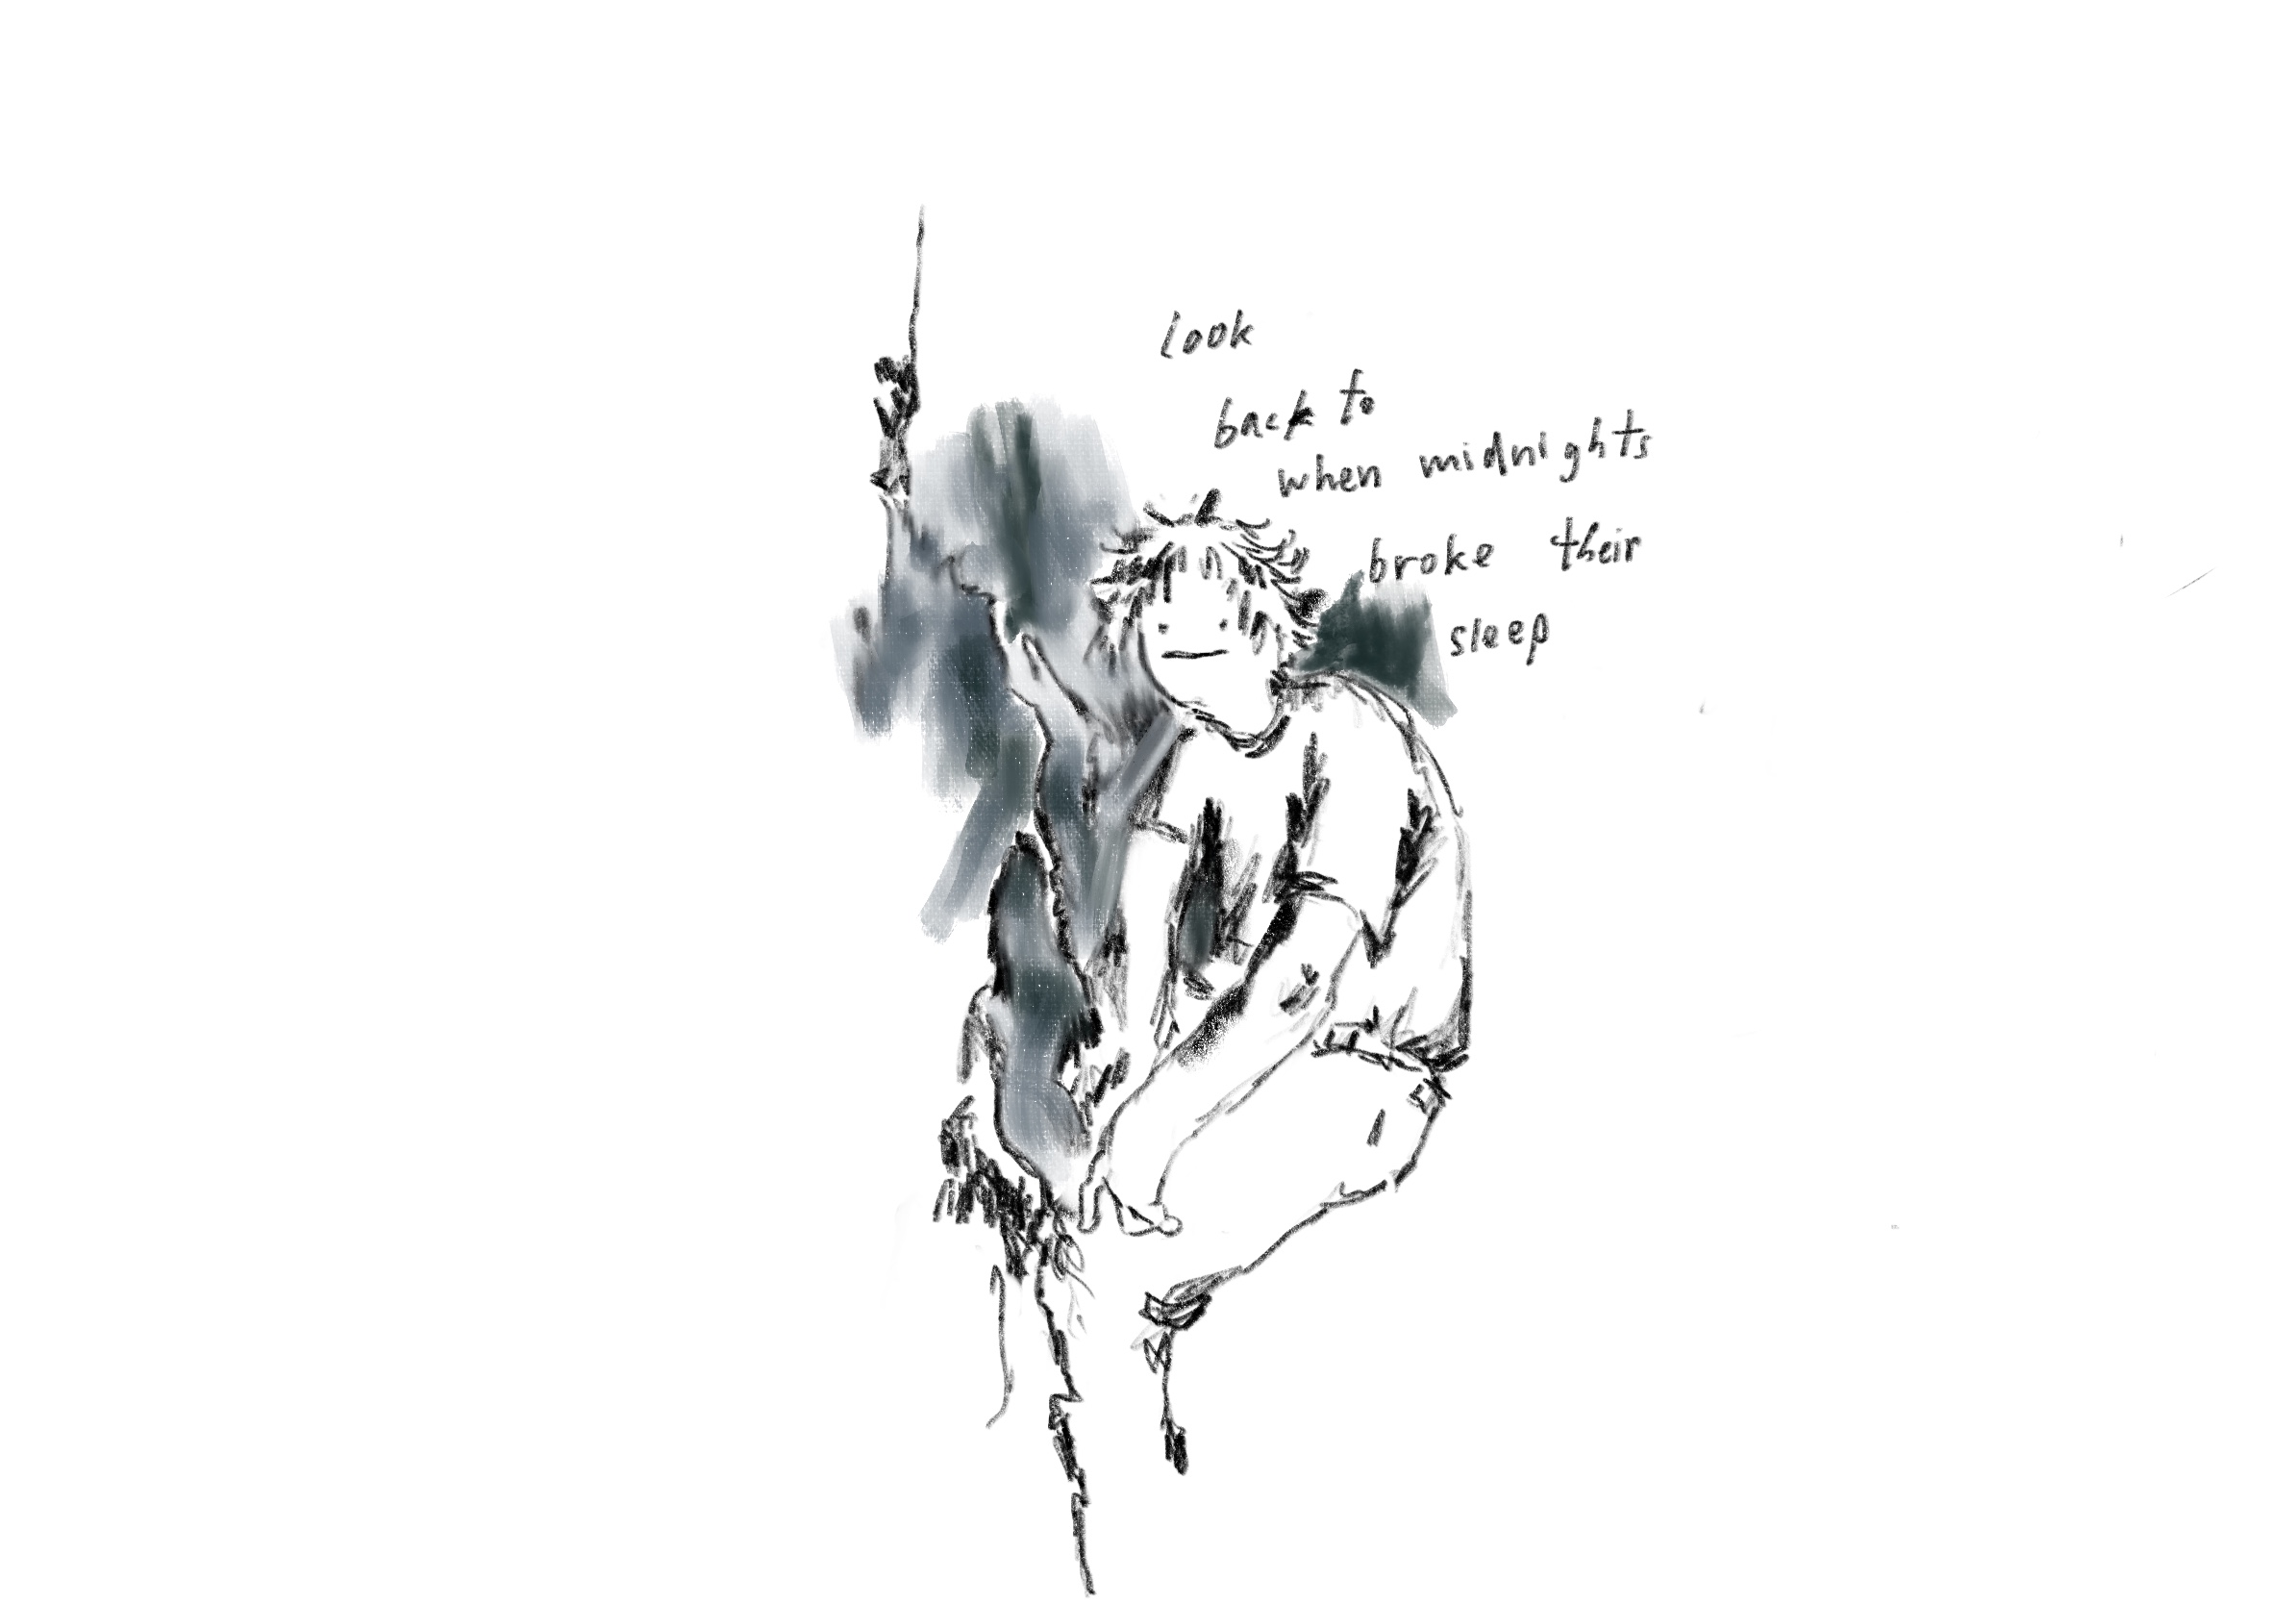 look
back to
when midnights
broke their
sleep